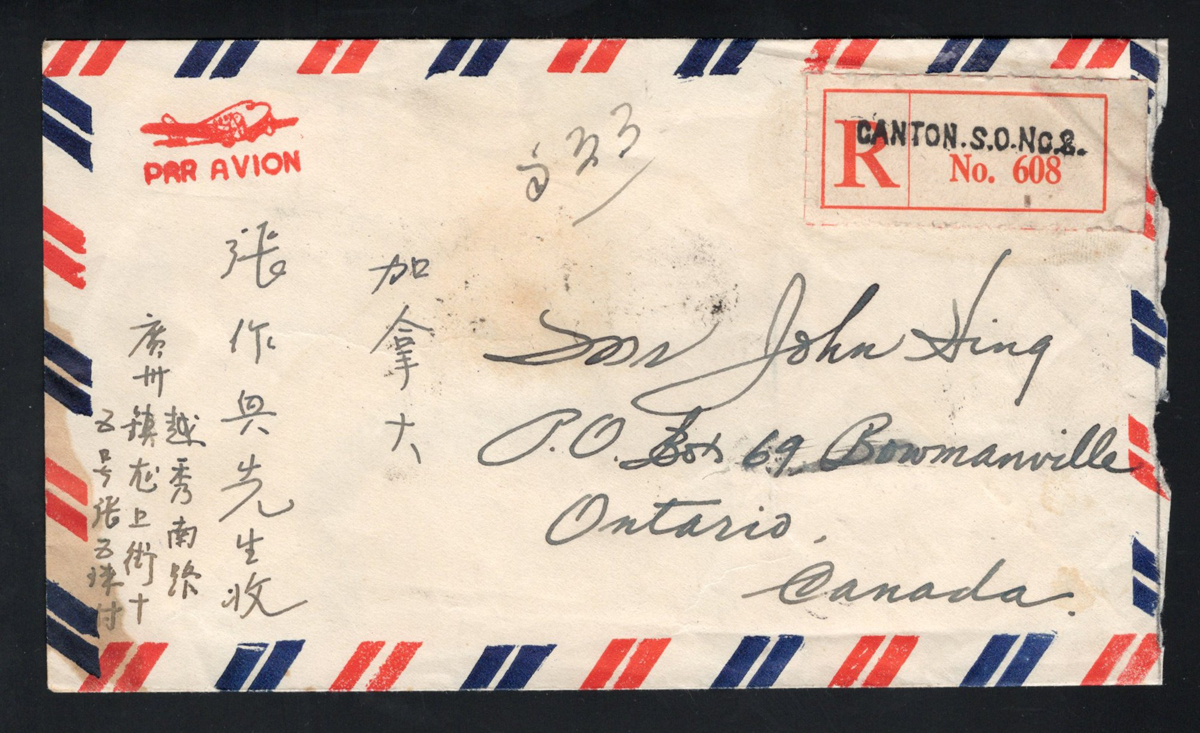 PAR AVION
CANTON.S.O.NO.2.
R No. 608
加拿大
張作興先生收
廣州越秀南路
鎮龙上街十
五号張玉珠付
John Hing
P.O. Box 69 Bowmanville
Ontario.
Canada.